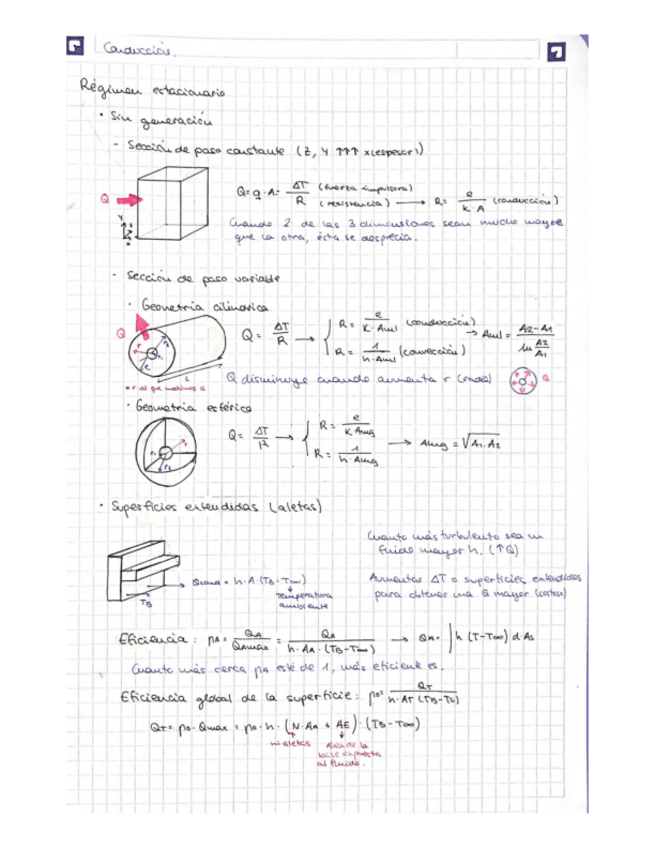 Conducción.
Régimen estacionario
• Sin generación
- Sección de paso constante (z, y ↑↑↑ x(espesor))
Q
Q = q·A = ΔT/R (fuerza impulsora) (resistencia) → R = e/(k·A) (conducción)
y
z
x
Cuando 2 de las 3 dimensiones sean mucho mayor
que la otra, ésta se desprecia.
- Sección de paso variable
• Geometría cilíndrica
Q
Q = ΔT/R → { R = e/(K·Aml) (conducción) → Aml = (A2-A1)/(ln A2/A1)
R = 1/(h·Aml) (convección)
L
Q disminuye cuando aumenta r (radio)
Q
• Geometría esférica
Q = ΔT/R → { R = e/(K·Amg) → Amg = √(A1·A2)
R = 1/(h·Amg)
r1
r2
r
• Superficies extendidas (aletas)
Cuanto más turbulento sea un
fluido mayor h. (↑Q)
Qconv = h·A·(TB-T∞)
temperatura
ambiente
TB
Aumentar ΔT o superficies extendidas
para obtener una Q mayor (costes)
Eficiencia: ηA = QA/QAmax = QA/(h·AA·(TB-T∞)) → QA = ∫h(T-T∞)dAs
Cuanto más cerca ηA esté de 1, más eficiente es.
Eficiencia global de la superficie: η0 = QT/(h·AT(TB-T∞))
QT = η0·Qmax = η0·h·(N·AA + AE)·(TB-T∞)
nº aletas
Área de la
base expuesta
al fluido.